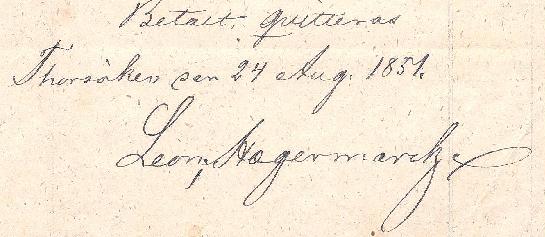 Betalt, qvitteras
Thorsåker den 24 Aug. 1851.
Leon. Hægermarck